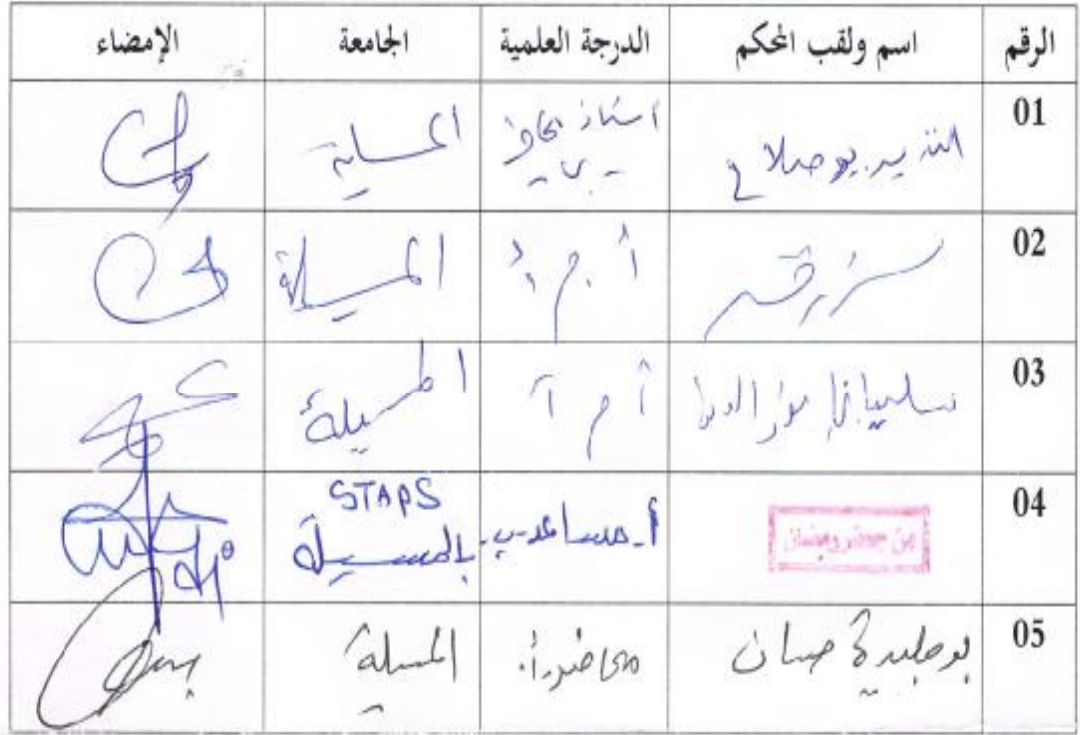 الرقم اسم ولقب المحكم الدرجة العلمية الجامعة الإمضاء
01 النذير بوصلاح استاذ محاضر ب المسيلة
02 أ.م.أ المسيلة
03 أ م أ المسيلة
04 بن جعفر رمضان أ.مساعد-ب- STAPS
بالمسيلة
05 بوجليدة حسان محاضر أ. المسيلة